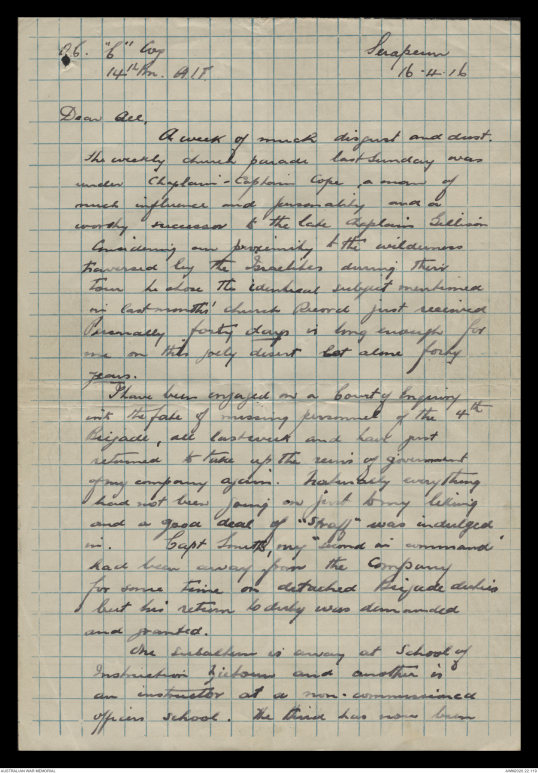 O.C. "C" Coy
14th Bn. A.I.F.
Serapeum
16.4.16
Dear All,
A week of much disgust and dust.
The weekly church parade last Sunday was
under Chaplain-Captain Cope, a man of
much influence and personality and a
worthy successor to the late Chaplain Gillison
Considering our proximity to the wilderness
traversed by the Israelites during their
tour he chose the identical subject mentioned
in last months' Church Record just received
Personally forty days is long enough for
me on this jolly desert let alone forty
years.
I have been engaged on a Court of Enquiry
into the fate of missing personnel of the 4th
Brigade, all last week and have just
returned to take up the reins of government
of my company again. Naturally everything
had not been going on just to my liking
and a good deal of "Straff" was indulged
in. Capt Smith, my "second in command"
had been away from the Company
for some time on detached Brigade duties
but his return to duty was demanded
and granted.
One subaltern is away at School of
Instruction Zeitoun and another is
an instructor at a non-commissioned
officers school. The third has now been
AUSTRALIAN WAR MEMORIAL